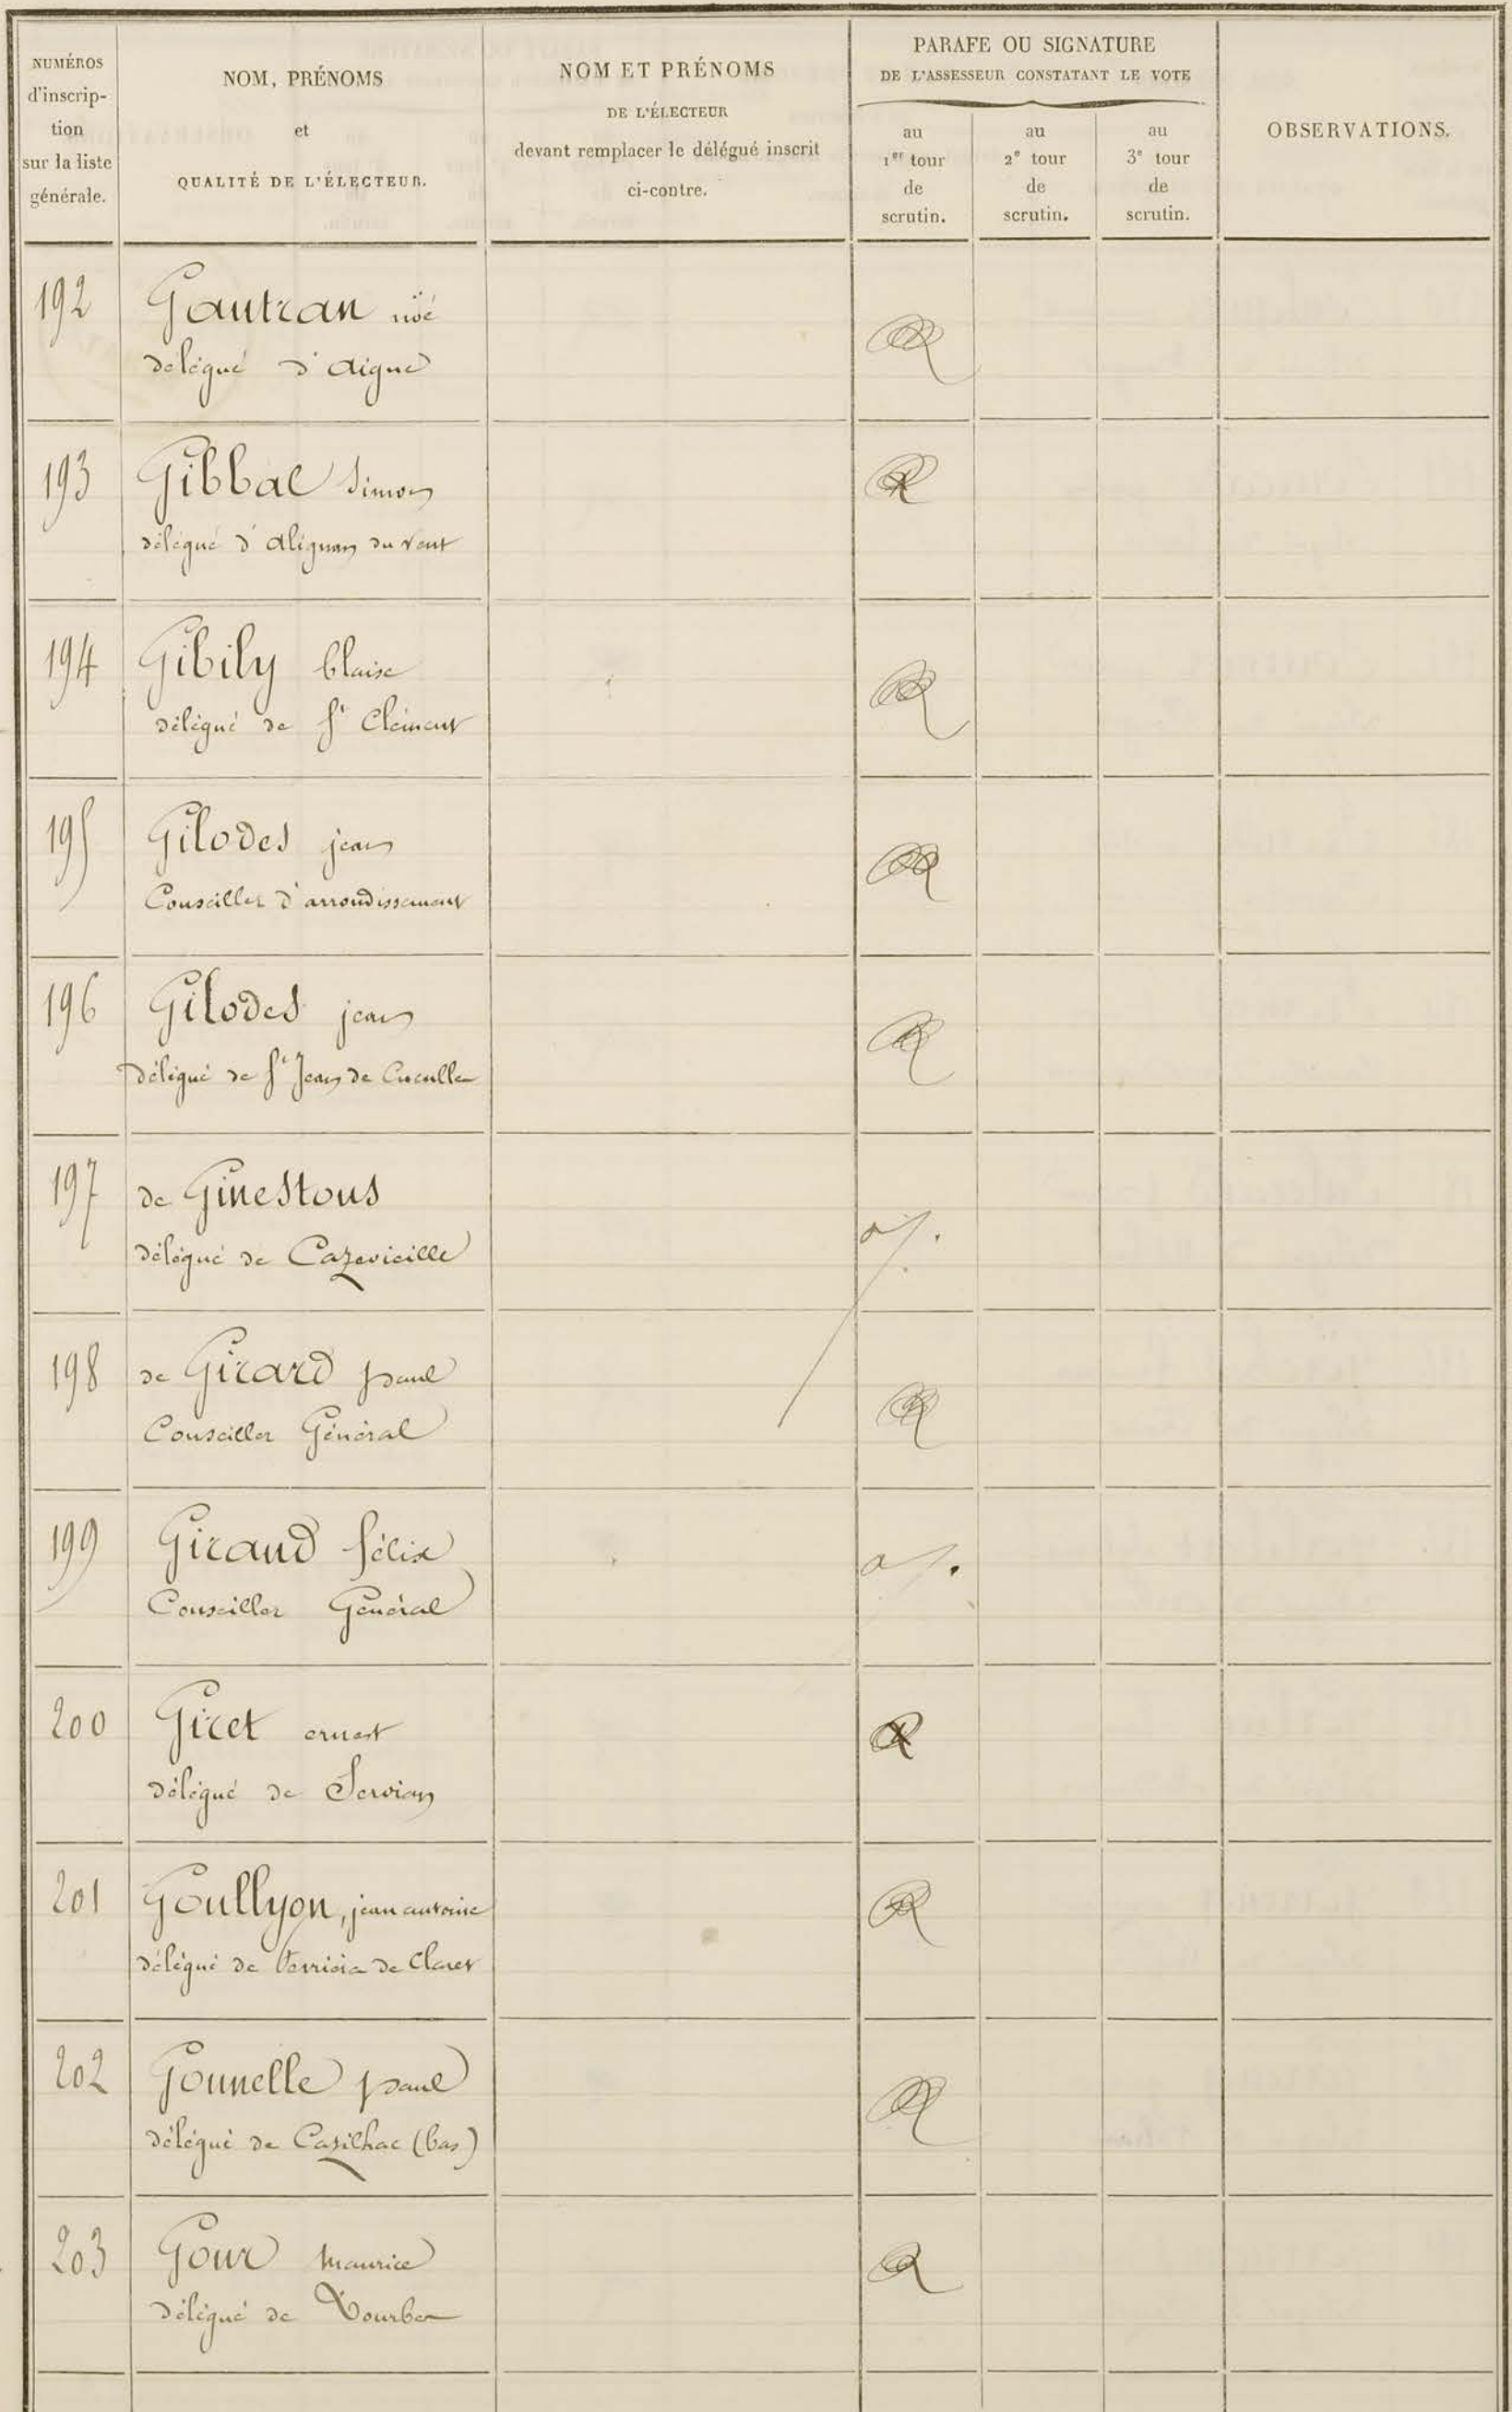 NUMÉROS
d'inscrip-
tion
sur la liste
générale.
NOM, PRÉNOMS
et
QUALITÉ DE L'ÉLECTEUR.
NOM ET PRÉNOMS
DE L'ÉLECTEUR
devant remplacer le délégué inscrit
ci-contre.
PARAFE OU SIGNATURE
DE L'ASSESSEUR CONSTATANT LE VOTE
au
1er tour
de
scrutin.
au
2e tour
de
scrutin.
au
3e tour
de
scrutin.
OBSERVATIONS.
192 Gautran noé
délégué d'Aigne
193 Gibbal Simon
délégué d'Alignan du Vent
194 Gibily blaise
délégué de St Clément
195 Gilodes jean
Conseiller d'arrondissement
196 Gilodes jean
délégué de St Jean de Cuculles
197 de Ginestous
délégué de Cazevieille
198 de Girard paul
Conseiller Général
199 Giraud félix
Conseiller Général
200 Giret ernest
délégué de Servian
201 Goullyon, jean antoine
délégué de Ferrières de Claret
202 Gounelle paul
délégué de Cazilhac (bas)
203 Gour maurice
délégué de Tourbes